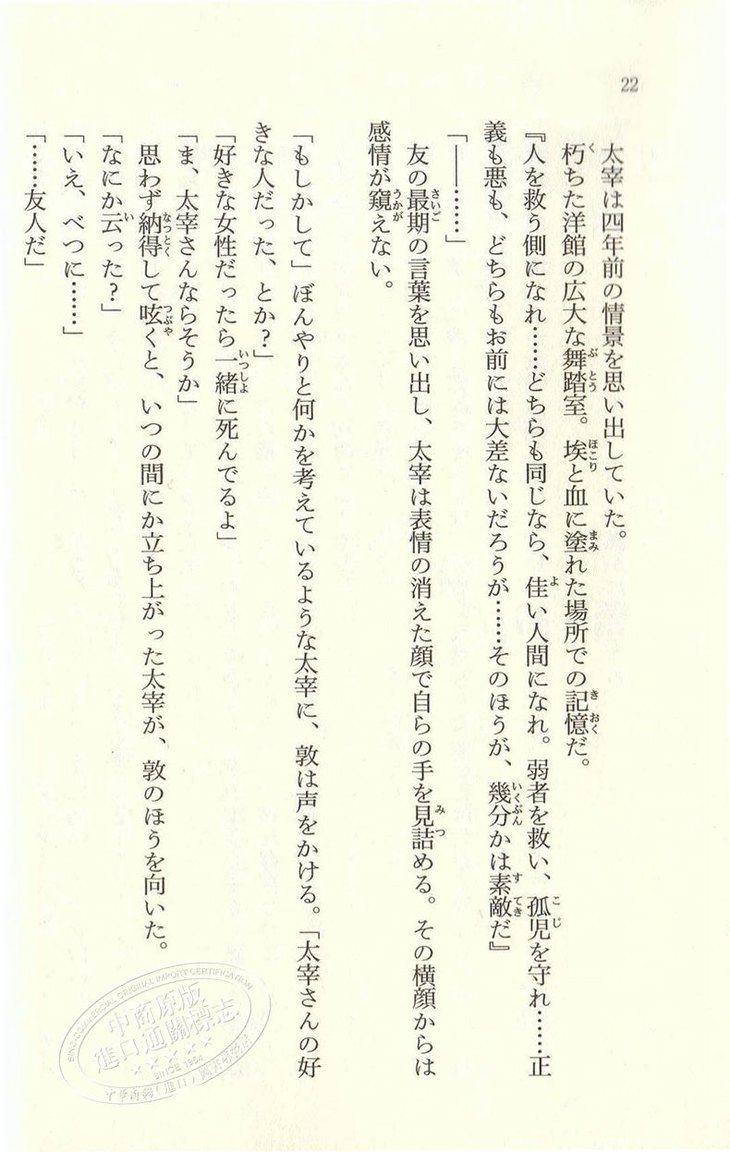 22
太宰は四年前の情景を思い出していた。
朽ちた洋館の広大な舞踏室。埃と血に塗れた場所での記憶だ。
『人を救う側になれ……どちらも同じなら、佳い人間になれ。弱者を救い、孤児を守れ……正
義も悪も、どちらもお前には大差ないだろうが……そのほうが、幾分かは素敵だ』
「――……」
友の最期の言葉を思い出し、太宰は表情の消えた顔で自らの手を見詰める。その横顔からは
感情が窺えない。
「もしかして」ぼんやりと何かを考えているような太宰に、敦は声をかける。「太宰さんの好
きな人だった、とか?」
「好きな女性だったら一緒に死んでるよ」
「ま、太宰さんならそうか」
思わず納得して呟くと、いつの間にか立ち上がった太宰が、敦のほうを向いた。
「なにか云った?」
「いえ、べつに……」
「……友人だ」
SINO-COMMERCIAL ORIGINAL IMPORT CERTIFICATION
中商原版
進口通關標志
SINCE 1984